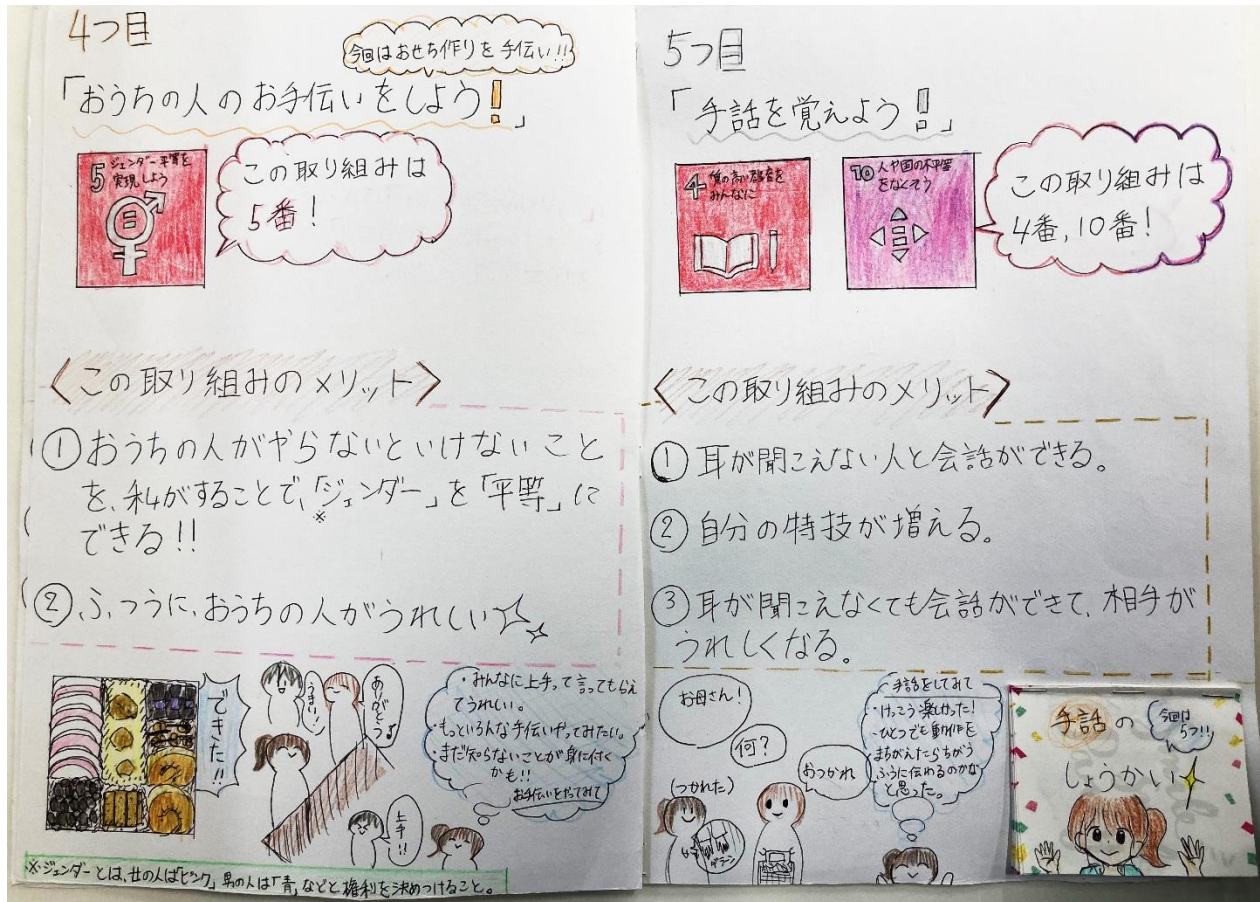 4つ目
今回はおせち作りを手伝い!!
「おうちの人のお手伝いをしよう!」
5 ジェンダー平等を
実現しよう
この取り組みは
5番!
〈この取り組みのメリット〉
①おうちの人がやらないといけないこと
を、私がすることで、「ジェンダー」を「平等」に
※
できる!!
②ふつうに、おうちの人がうれしい
できた!!
うまい!
ありがとう
上手!!
・みんなに上手って言ってもらえ
てうれしい。
・もっといろんな手伝いやってみたい。
・まだ知らないことが身に付く
かも!!
お手伝いをやってみて
※ジェンダーとは、女の人は「ピンク」男の人は「青」などと権利を決めつけること。
5つ目
「手話を覚えよう!!」
4 質の高い教育を
みんなに
10 人や国の不平等
をなくそう
この取り組みは
4番,10番!
〈この取り組みのメリット〉
①耳が聞こえない人と会話ができる。
②自分の特技が増える。
③耳が聞こえなくても会話ができて、相手が
うれしくなる。
お母さん!
何?
(つかれた)
おつかれ
手話をしてみて
・けっこう楽しかった!
・ひとつでも動作を
まちがえたらちがう
ふうに伝わるのかな
と思った。
手話の
今回は
5つ!!
しょうかい